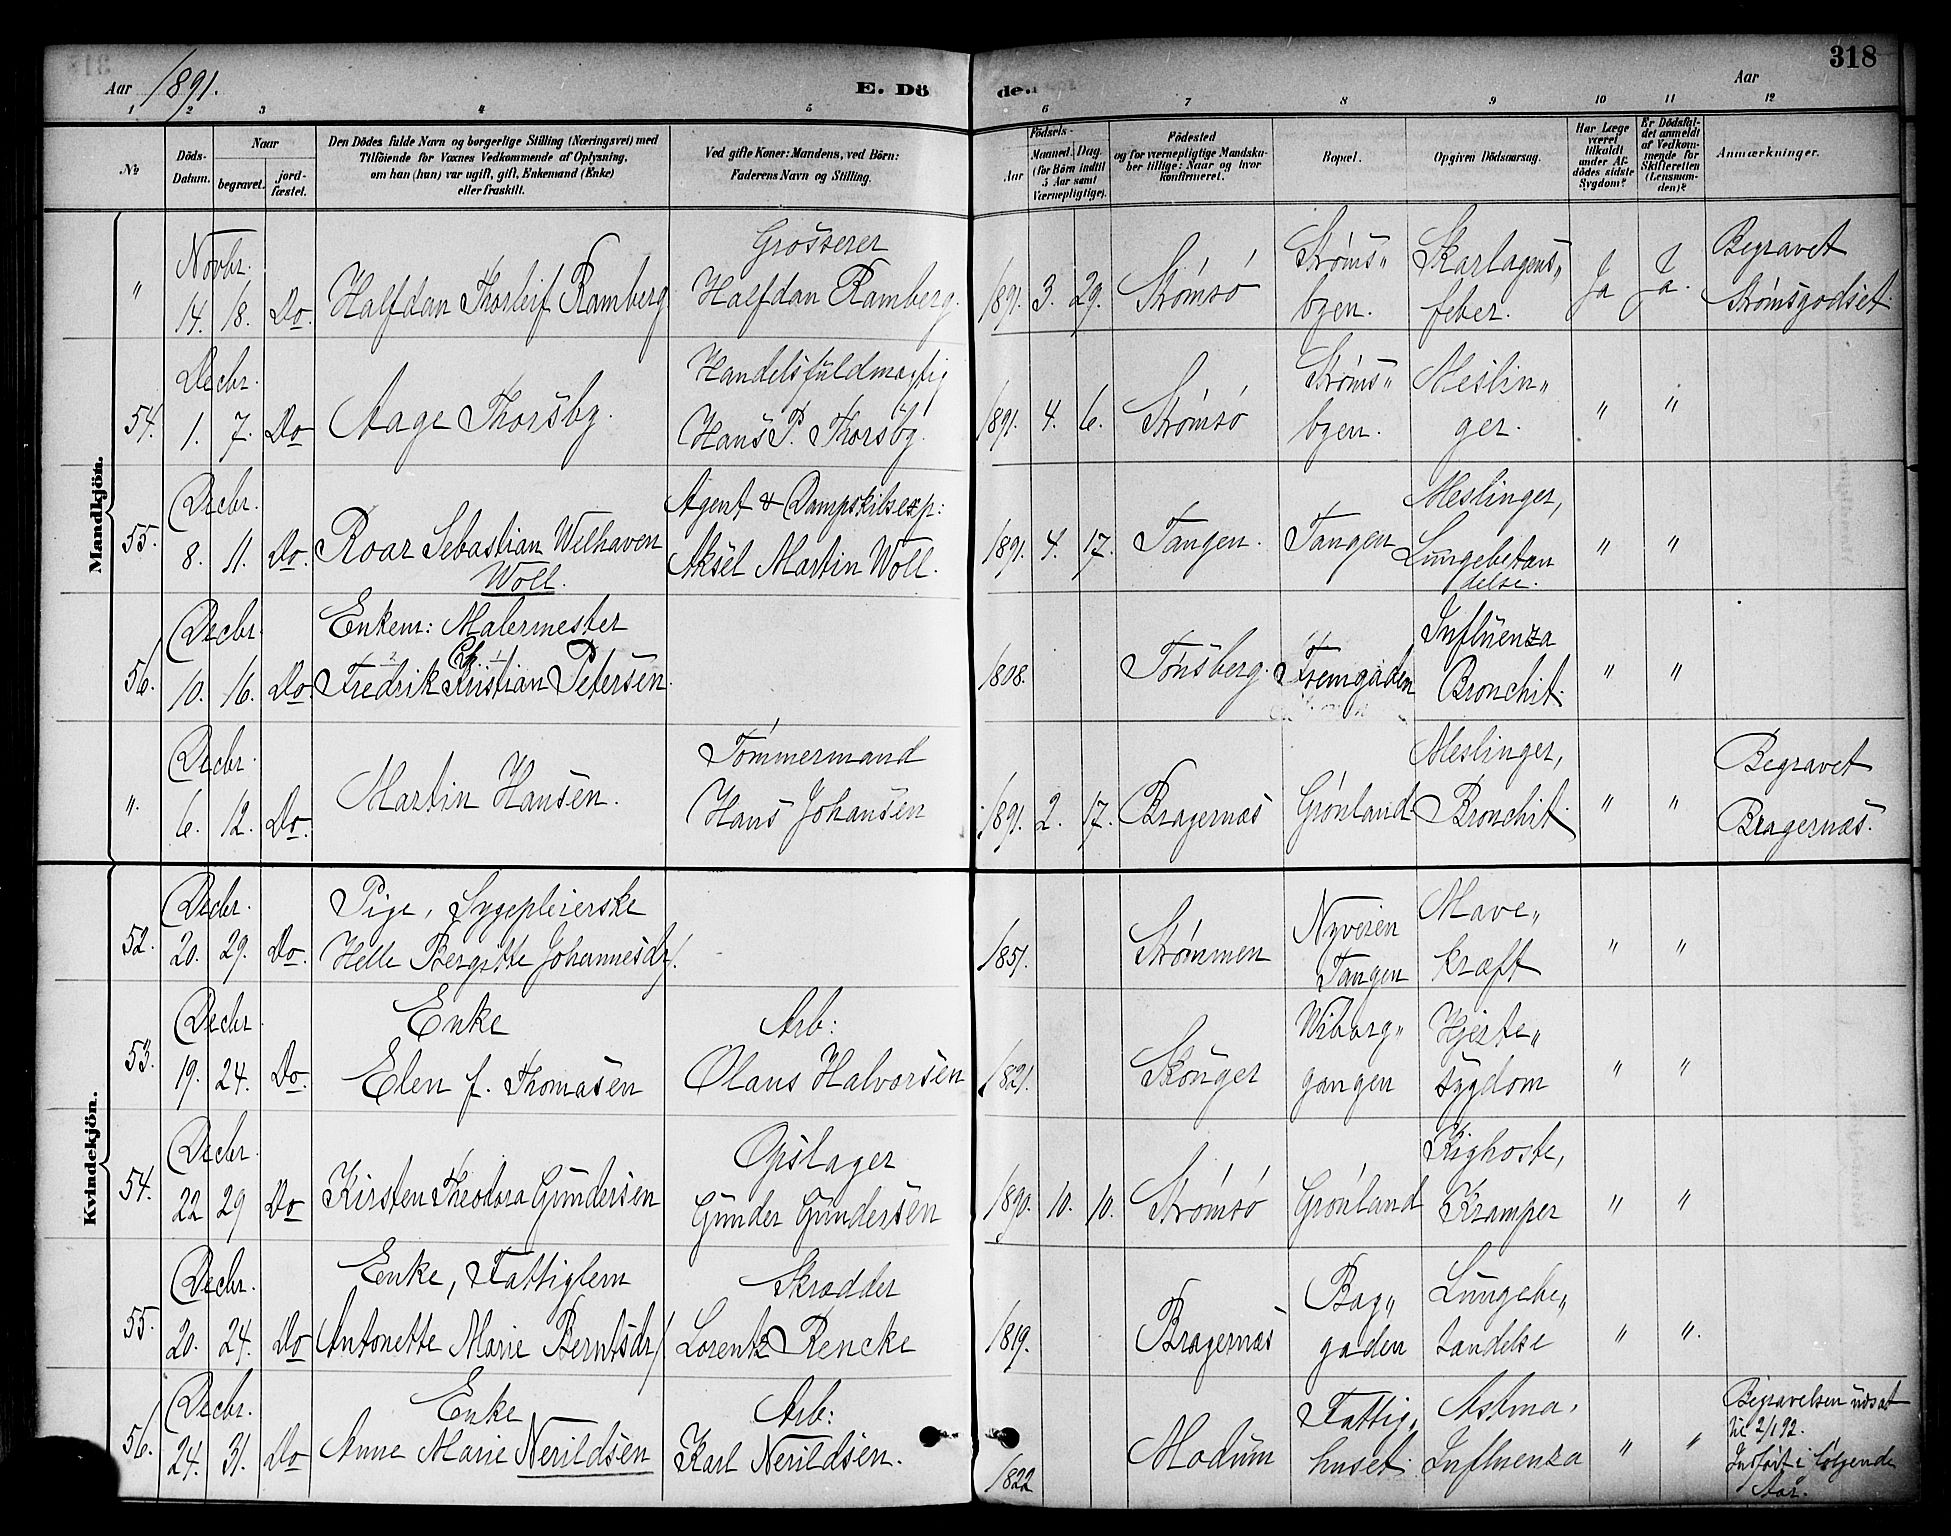 318
Aar 1891.
E. Dö
de.
Aar
1 2 3 4 5 6 7 8 9 10 11 12
No
Döds-
Datum.
Naar
begravet.
jord-
fæstet.
Den Dödes fulde Navn og borgerlige Stilling (Næringsvei) med
Tilföiende for Voxnes Vedkommende af Oplysning,
om han (hun) var ugift, gift, Enkemand (Enke)
eller fraskilt.
Ved gifte Koner: Mandens, ved Börn:
Faderens Navn og Stilling.
Födsels-
Aar
Maaned. Dag.
(for Börn indtil
5 Aar samt
Værnepligtige).
Födested
og for værnepligtige Mandska-
ber tillige: Naar og hvor
konfirmeret.
Bopæl.
Opgiven Dödsaarsag.
Har Læge
været
tilkaldt
under Af-
dödes sidste
Sygdom?
Er Dödsfal-
det anmeldt
af Vedkom-
mende for
Skifteretten
(Lensman-
den)?
Anmærkninger.
Mandkjön.
" Novbr. 14. 18. Do.
Halfdan Thorleif Ramberg
Grosserer
Halfdan Ramberg.
1891. 3. 29. Strömsö
Ströms„
byen.
Skarlagens„
feber.
Ja Ja.
Begravet
Strömsgodset.
54. Decbr. 1. 7. Do
Aage Thorsby.
Handelsfuldmægtig
Hans P. Thorsby.
1891. 4. 6. Strömsö
Ströms„
byen.
Meslin„
ger.
" "
55. Decbr. 8. 11. Do.
Roar Sebastian Welhaven
Woll.
Agent & Dampskibsexp:
Aksel Martin Woll.
1891. 4. 17. Tangen. Tangen
Meslinger,
Lungebetæn
delse.
" "
56. Decbr. 10. 16. Do
Enkem: Malermester
Fredrik Christian Petersen.
1808. Tönsberg. Fremgaden
Influenza
Bronchit.
" "
". Decbr. 6. 12. Do.
Martin Hansen.
Tömmermand
Hans Johansen
1891. 2. 17. Bragernæs Grönland.
Meslinger,
Bronchit.
" "
Begravet
Bragernæs.
Kvindekjön.
52. Decbr. 20. 29. Do.
Pige, Sygepleierske
Helle Bergitte Johannesdr.
1851. Strömmen
Nyveien
Tangen
Mave„
kræft
" "
53. Decbr 19. 24. Do.
Enke
Elen f. Thomasen
Arb:
Olaus Halvorsen
1821. Skouger
Wiborg„
gangen
Hjerte„
sygdom
" "
54. Decbr. 22 29 Do
Kirsten Theodora Gundersen
Opslager
Gunder Gundersen
1890. 10. 10. Strömsö Grönland
Kighoste,
Kramper
" "
55. Decbr. 20. 24. Do
Enke, Fattiglem
Antonette Marie Berntsdr.
Skrædder
Lorentz Rencke
1819. Bragernæs
Bag„
gaden
Lungebe„
tændelse
" ".
56. Decbr. 24. 31. Do
Enke
Anne Marie Nerildsen
Arb:
Karl Nerildsen.
1822 Modum
Fattig„
huset.
Astma,
Influenza
" "
Begravelsen udsat
til 2/1 92.
Indfört i fölgende
Aar.